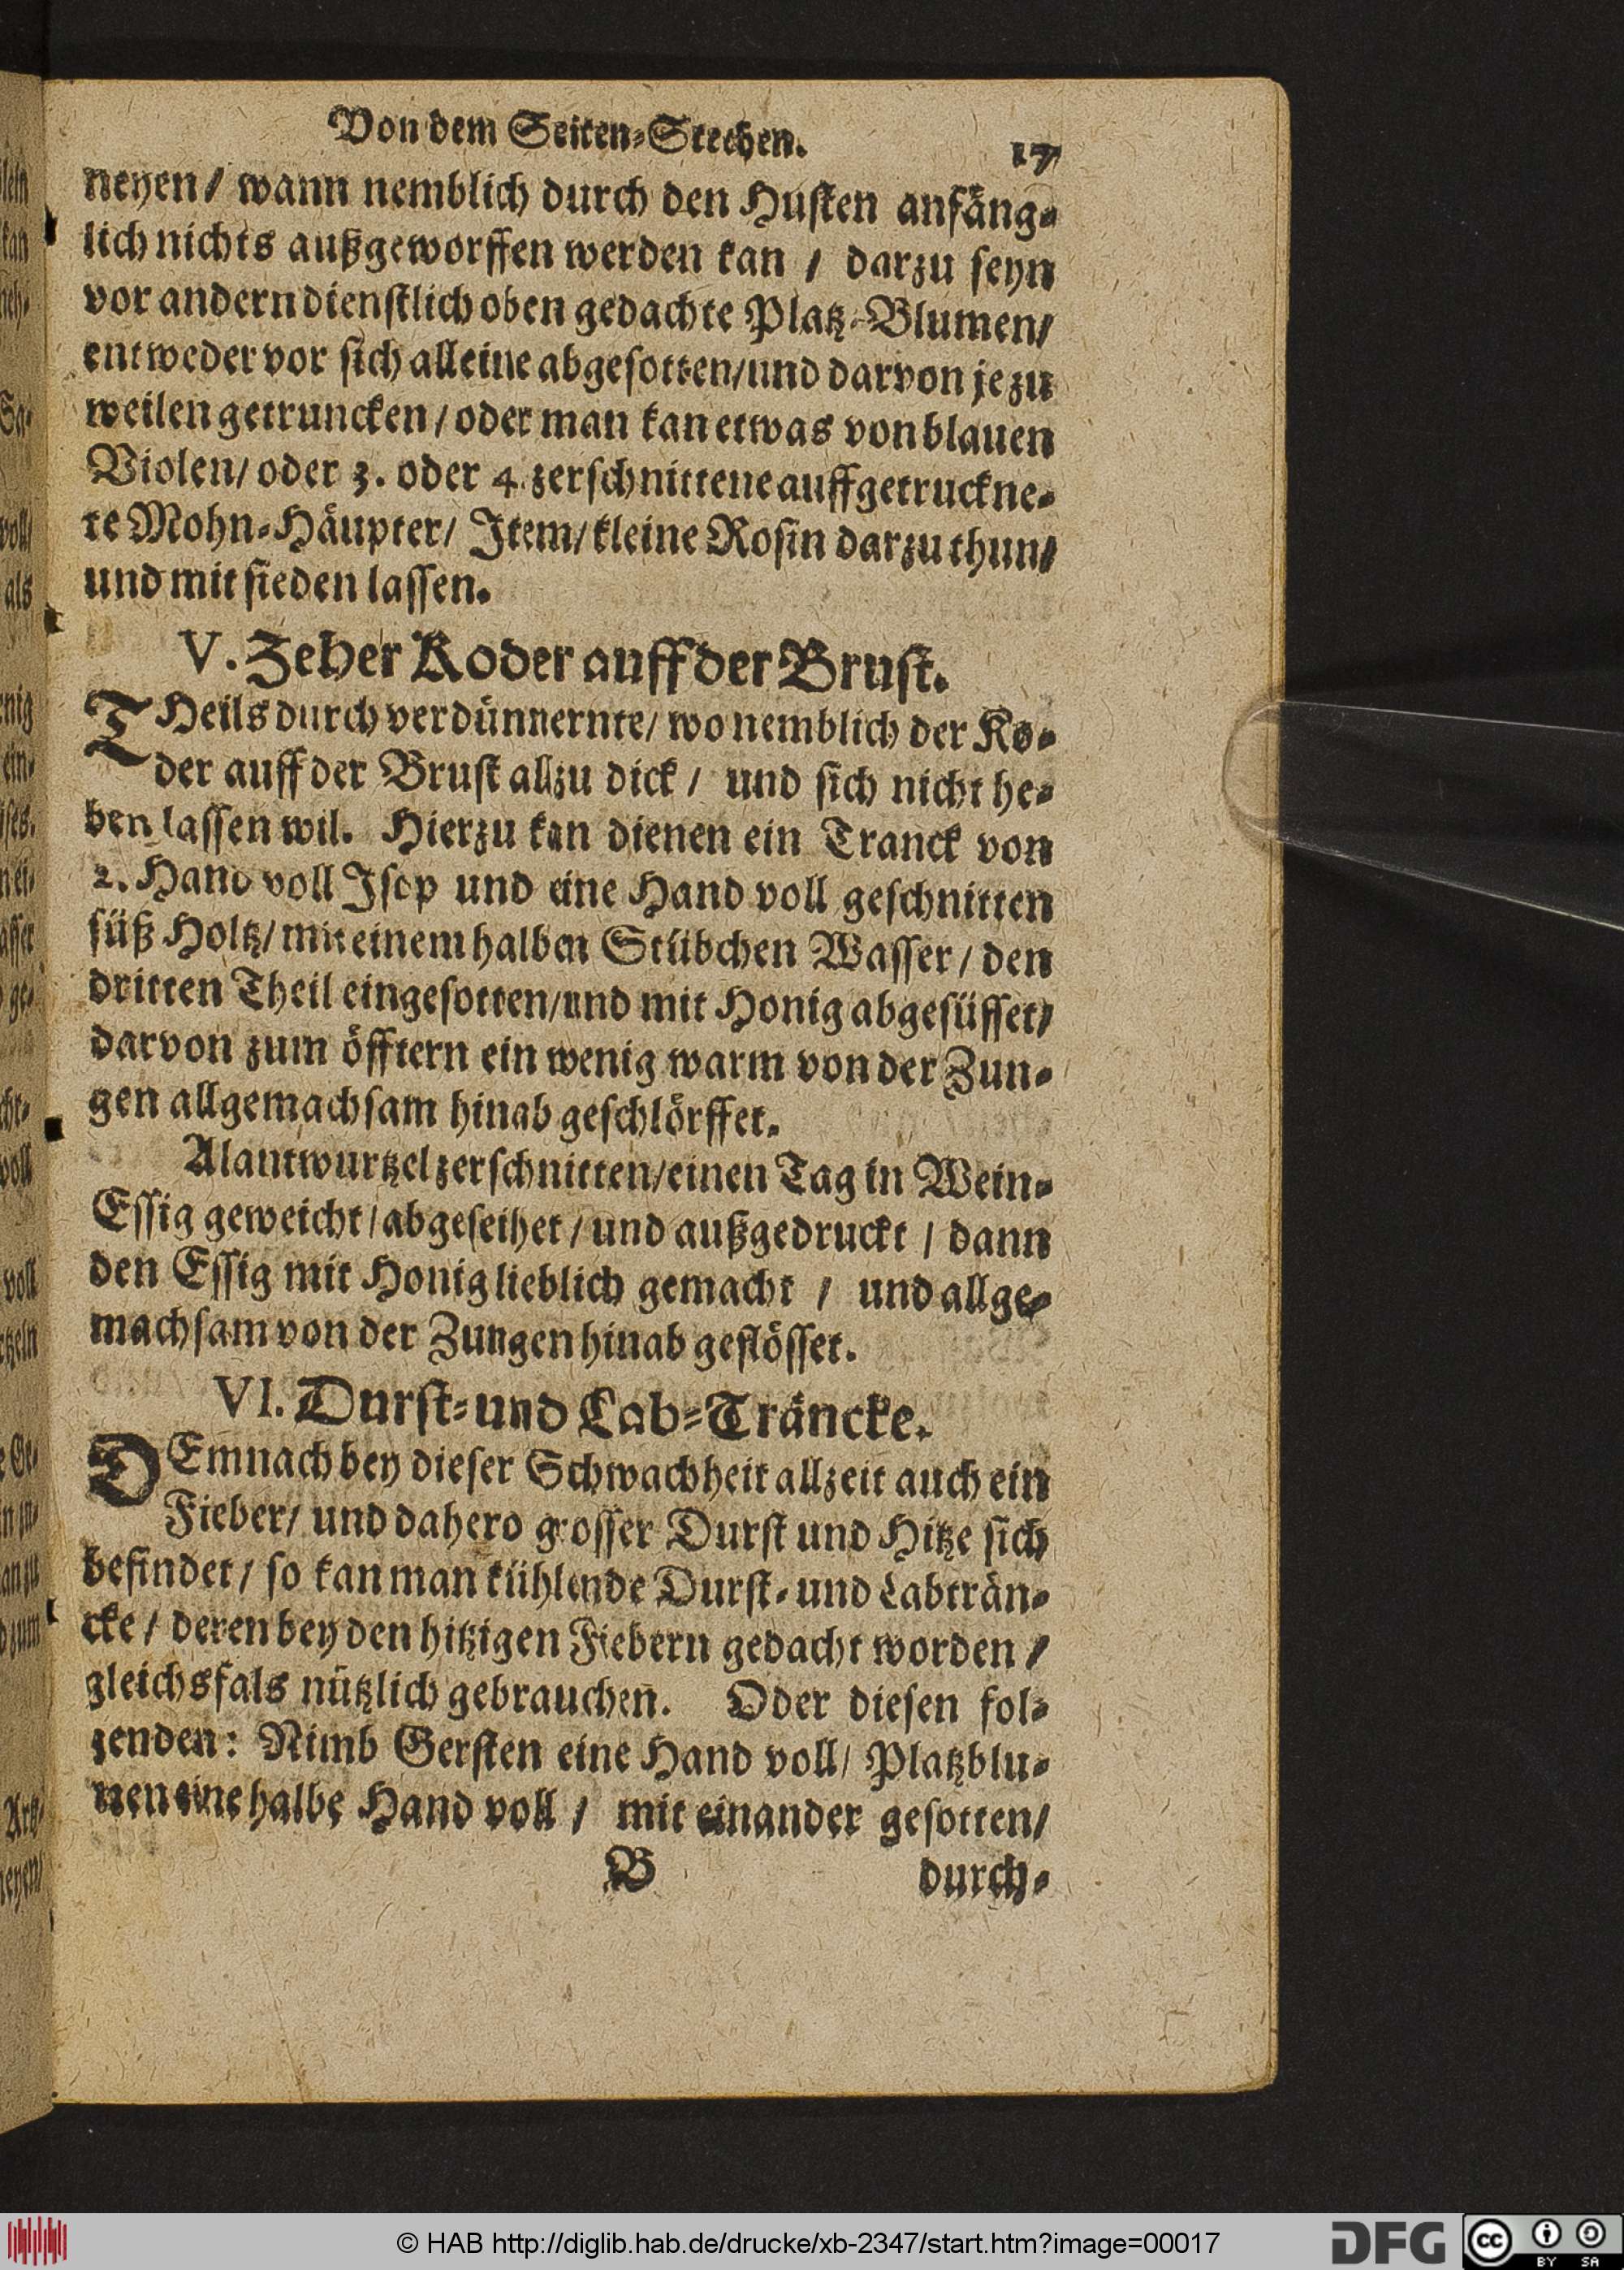 Von dem Seiten-Stechen. 17
neyen/ wann nemblich durch den Husten anfäng-
lich nichts außgeworffen werden kan / darzu seyn
vor andern dienstlich oben gedachte Platz-Blumen/
entweder vor sich alleine abgesotten/und darvon je zu
weilen getruncken/oder man kan etwas von blauen
Violen/ oder 3. oder 4. zerschnittene auffgetruckne-
te Mohn-Häupter/ Item/ kleine Rosin darzu thun/
und mit sieden lassen.
V. Zeher Koder auff der Brust.
THeils durch verdünnernte/ wo nemblich der Ko-
der auff der Brust allzu dick / und sich nicht he-
ben lassen wil. Hierzu kan dienen ein Tranck von
2. Hand voll Isop und eine Hand voll geschnitten
süß Holtz/ mit einem halben Stübchen Wasser/ den
dritten Theil eingesotten/und mit Honig abgesüsset/
darvon zum öfftern ein wenig warm von der Zun-
gen allgemachsam hinab geschlörffet.
Alantwurtzel zerschnitten/einen Tag in Wein-
Essig geweicht/abgeseihet/und außgedruckt / dann
den Essig mit Honig lieblich gemacht / und allge-
machsam von der Zungen hinab geflösset.
VI. Durst- und Lab-Träncke.
DEmnach bey dieser Schwachheit allzeit auch ein
Fieber/ und dahero grosser Durst und Hitze sich
befindet/ so kan man kühlende Durst- und Labträn-
cke/ deren bey den hitzigen Fiebern gedacht worden /
gleichsfals nützlich gebrauchen. Oder diesen fol-
genden: Nimb Gersten eine Hand voll/ Platzblu-
men eine halbe Hand voll / mit einander gesotten/
B durch-
© HAB http://diglib.hab.de/drucke/xb-2347/start.htm?image=00017
DFG
cc BY SA